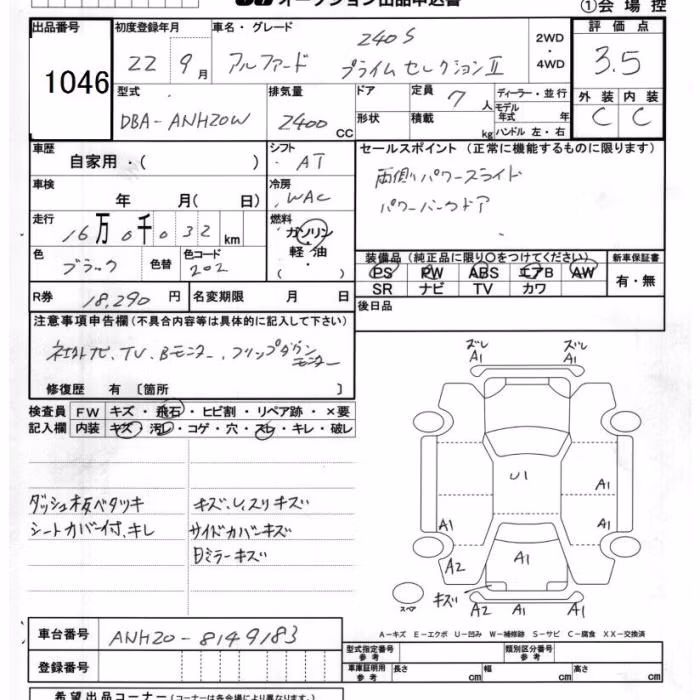 オークション出品申込書
①会場控
出品番号 初度登録年月 車名・グレード 2WD・4WD 評価点
1046 22 9月 アルファード 240S プライムセレクションⅡ 3.5
型式 排気量 ドア 定員 7人 ディーラー・並行 外装 内装
DBA-ANH20W 2400 CC 形状 積載 kg モデル年式 年 ハンドル 左・右 C C
車歴 シフト セールスポイント (正常に機能するものに限ります)
自家用・( ) AT 両側パワースライド
車検 冷房 パワーバックドア
年 月( 日) WAC
走行 燃料
16万0千032km ガソリン・軽油・( )
色 色替 色コード 装備品 (純正品に限り○をつけてください) 新車保証書
ブラック 202 PS PW ABS エアB AW 有・無
SR ナビ TV カワ
R券 18,290円 名変期限 月 日 後日品
注意事項申告欄(不具合内容等は具体的に記入して下さい)
社外ナビ、TV、Bモニター、フリップダウンモニター
修復歴 有〔箇所 〕
検査員 FW キズ・飛石・ヒビ割・リペア跡・×要
記入欄 内装 キズ・汚レ・コゲ・穴・スレ・キレ・破レ
ズレ ズレ
A1 A1
U1 A1
A1 A1
A2 A1
キズ
A2 A1 A1
スペア
ダッシュ板ベタツキ キズ、U、スリキズ
シートカバー付、キレ サイドカバーキズ
目ミラーキズ
A-キズ E-エクボ U-凹み W-補修跡 S-サビ C-腐食 XX-交換済
車台番号 ANH20-8149183
登録番号
型式指定番号 参考 類別区分番号 参考
車庫証明用 参考 長さ cm 幅 cm 高さ cm
希望出品コーナー(コーナーは各会場により異なります)